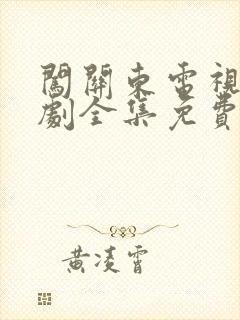 闖關東電視
劇全集免費
黃凌霄